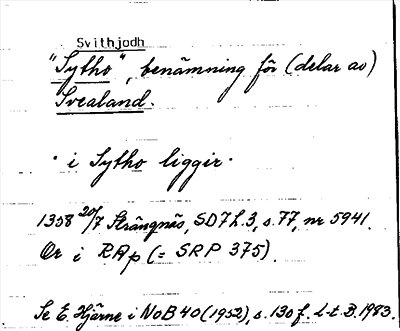 Svithjodh
"Sytho", benämning för (delar av)
Svealand.
" i Sytho liggir "
1358 20/7 Strängnäs, SD 7 h. 3, s. 77, nr 5941.
Or i RAp (= SRP 375).
Se E. Hjärne i NoB 40 (1952), s. 130 f. L-t. B. 1983.